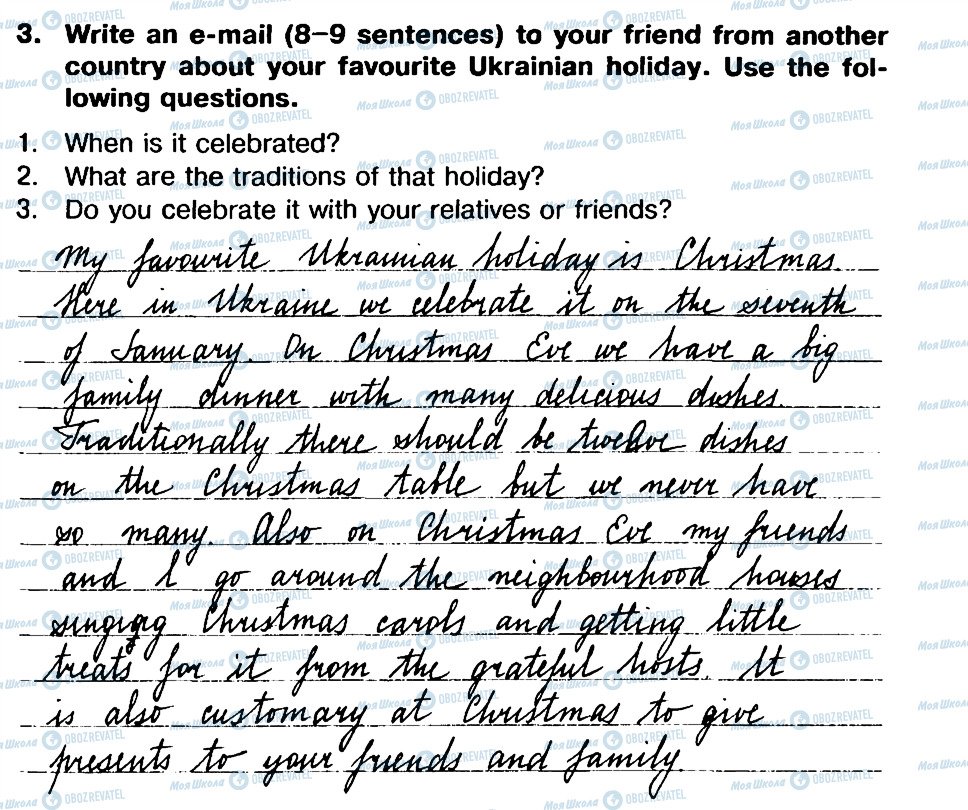 3. Write an e-mail (8–9 sentences) to your friend from another
country about your favourite Ukrainian holiday. Use the fol-
lowing questions.
1. When is it celebrated?
2. What are the traditions of that holiday?
3. Do you celebrate it with your relatives or friends?
My favourite Ukrainian holiday is Christmas.
Here in Ukraine we celebrate it on the seventh
of January. On Christmas Eve we have a big
family dinner with many delicious dishes.
Traditionally there should be twelve dishes
on the Christmas table but we never have
so many. Also on Christmas Eve my friends
and I go around the neighbourhood houses
singing Christmas carols and getting little
treats for it from the grateful hosts. It
is also customary at Christmas to give
presents to your friends and family.
Моя Школа OBOZREVATEL